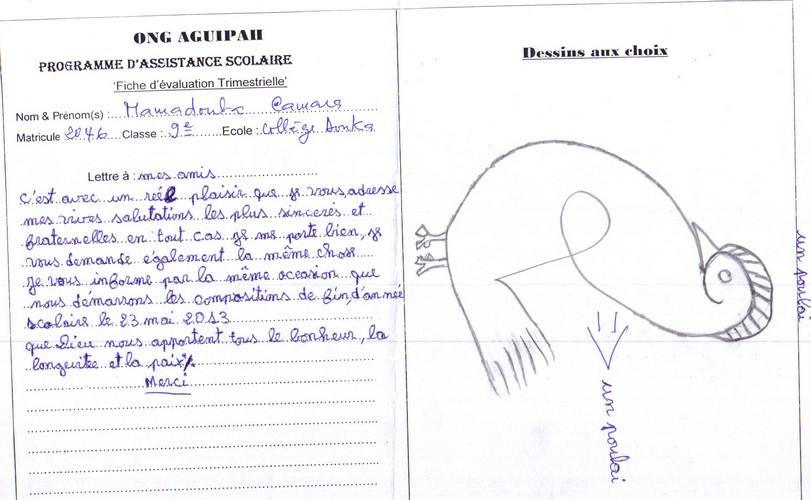 ONG AGUIPAH
PROGRAMME D'ASSISTANCE SCOLAIRE
'Fiche d'évaluation Trimestrielle'
Nom & Prénom(s) : Mamadouba Camara
Matricule 2046 Classe : 9e Ecole : Collège Donka
Lettre à : mes amis
c'est avec un réel plaisir que je vous adresse
mes vives salutations les plus sincères et
fraternelles en tout cas je me porte bien, je
vous demande egalement la même chose
je vous informe par la même occasion que
nous démarrons les compositions de fin d'année
scolaire le 23 mai 2013
que Dieu nous apportent tous le bonheur, la
longuitée et la paix
Merci
Dessins aux choix
un poulai
un poulai